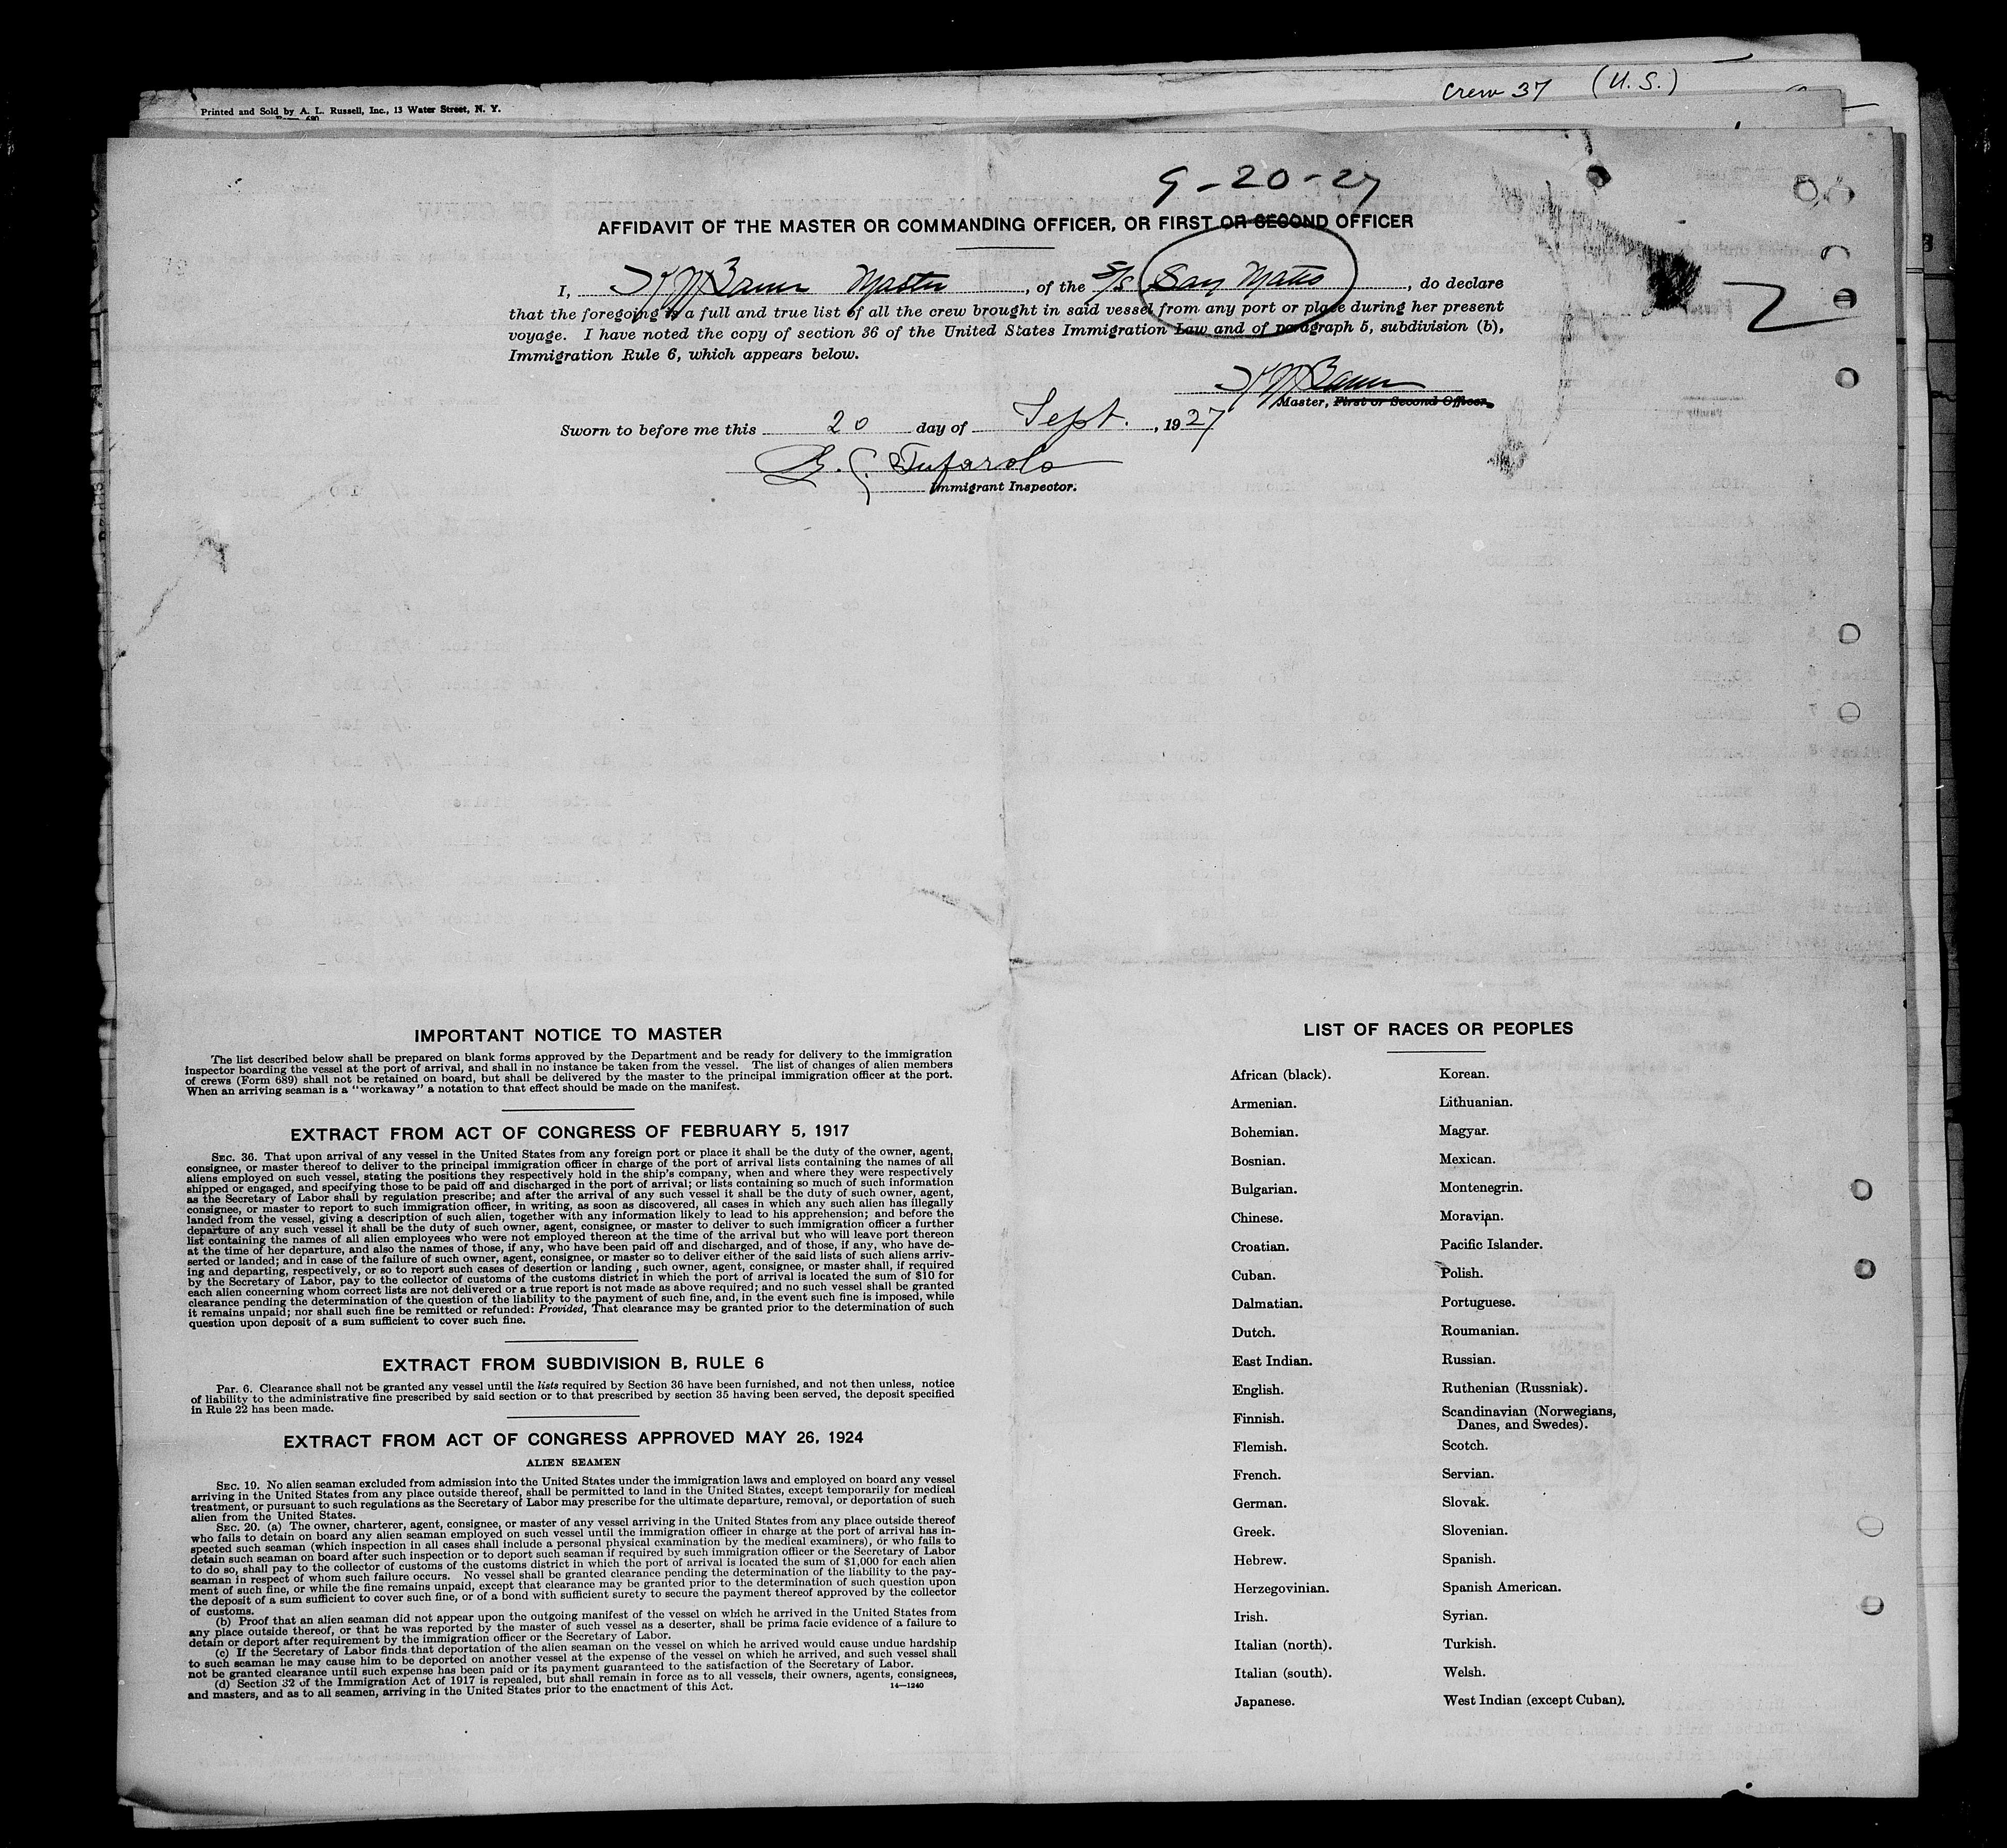 crew 37 (U.S.)
Printed and Sold by A. L. Russell, Inc., 13 Water Street, N. Y.
9-20-27
AFFIDAVIT OF THE MASTER OR COMMANDING OFFICER, OR FIRST OR SECOND OFFICER
I, Master, of the S/S San Mateo, do declare
that the foregoing is a full and true list of all the crew brought in said vessel from any port or place during her present
voyage. I have noted the copy of section 36 of the United States Immigration Law and of paragraph 5, subdivision (b),
Immigration Rule 6, which appears below.
Master, First or Second Officer.
Sworn to before me this 20 day of Sept., 1927
Immigrant Inspector.
IMPORTANT NOTICE TO MASTER
The list described below shall be prepared on blank forms approved by the Department and be ready for delivery to the immigration
inspector boarding the vessel at the port of arrival, and shall in no instance be taken from the vessel. The list of changes of alien members
of crews (Form 689) shall not be retained on board, but shall be delivered by the master to the principal immigration officer at the port.
When an arriving seaman is a "workaway" a notation to that effect should be made on the manifest.
EXTRACT FROM ACT OF CONGRESS OF FEBRUARY 5, 1917
SEC. 36. That upon arrival of any vessel in the United States from any foreign port or place it shall be the duty of the owner, agent,
consignee, or master thereof to deliver to the principal immigration officer in charge of the port of arrival lists containing the names of all
aliens employed on such vessel, stating the positions they respectively hold in the ship's company, when and where they were respectively
shipped or engaged, and specifying those to be paid off and discharged in the port of arrival; or lists containing so much of such information
as the Secretary of Labor shall by regulation prescribe; and after the arrival of any such vessel it shall be the duty of such owner, agent,
consignee, or master to report to such immigration officer, in writing, as soon as discovered, all cases in which any such alien has illegally
landed from the vessel, giving a description of such alien, together with any information likely to lead to his apprehension; and before the
departure of any such vessel it shall be the duty of such owner, agent, consignee, or master to deliver to such immigration officer a further
list containing the names of all alien employees who were not employed thereon at the time of the arrival but who will leave port thereon
at the time of her departure, and also the names of those, if any, who have been paid off and discharged, and of those, if any, who have de-
serted or landed; and in case of the failure of such owner, agent, consignee, or master so to deliver either of the said lists of such aliens arriv-
ing and departing, respectively, or so to report such cases of desertion or landing, such owner, agent, consignee, or master shall, if required
by the Secretary of Labor, pay to the collector of customs of the customs district in which the port of arrival is located the sum of $10 for
each alien concerning whom correct lists are not delivered or a true report is not made as above required; and no such vessel shall be granted
clearance pending the determination of the question of the liability to the payment of such fine, and, in the event such fine is imposed, while
it remains unpaid; nor shall such fine be remitted or refunded: Provided, That clearance may be granted prior to the determination of such
question upon deposit of a sum sufficient to cover such fine.
EXTRACT FROM SUBDIVISION B, RULE 6
Par. 6. Clearance shall not be granted any vessel until the lists required by Section 36 have been furnished, and not then unless, notice
of liability to the administrative fine prescribed by said section or to that prescribed by section 35 having been served, the deposit specified
in Rule 22 has been made.
EXTRACT FROM ACT OF CONGRESS APPROVED MAY 26, 1924
ALIEN SEAMEN
SEC. 19. No alien seaman excluded from admission into the United States under the immigration laws and employed on board any vessel
arriving in the United States from any place outside thereof, shall be permitted to land in the United States, except temporarily for medical
treatment, or pursuant to such regulations as the Secretary of Labor may prescribe for the ultimate departure, removal, or deportation of such
alien from the United States.
SEC. 20. (a) The owner, charterer, agent, consignee, or master of any vessel arriving in the United States from any place outside thereof
who fails to detain on board any alien seaman employed on such vessel until the immigration officer in charge at the port of arrival has in-
spected such seaman (which inspection in all cases shall include a personal physical examination by the medical examiners), or who fails to
detain such seaman on board after such inspection or to deport such seaman if required by such immigration officer or the Secretary of Labor
to do so, shall pay to the collector of customs of the customs district in which the port of arrival is located the sum of $1,000 for each alien
seaman in respect of whom such failure occurs. No vessel shall be granted clearance pending the determination of the liability to the pay-
ment of such fine, or while the fine remains unpaid, except that clearance may be granted prior to the determination of such question upon
the deposit of a sum sufficient to cover such fine, or of a bond with sufficient surety to secure the payment thereof approved by the collector
of customs.
(b) Proof that an alien seaman did not appear upon the outgoing manifest of the vessel on which he arrived in the United States from
any place outside thereof, or that he was reported by the master of such vessel as a deserter, shall be prima facie evidence of a failure to
detain or deport after requirement by the immigration officer or the Secretary of Labor.
(c) If the Secretary of Labor finds that deportation of the alien seaman on the vessel on which he arrived would cause undue hardship
to such seaman he may cause him to be deported on another vessel at the expense of the vessel on which he arrived, and such vessel shall
not be granted clearance until such expense has been paid or its payment guaranteed to the satisfaction of the Secretary of Labor.
(d) Section 32 of the Immigration Act of 1917 is repealed, but shall remain in force as to all vessels, their owners, agents, consignees,
and masters, and as to all seamen, arriving in the United States prior to the enactment of this Act.
14—1240
LIST OF RACES OR PEOPLES
African (black). Korean.
Armenian. Lithuanian.
Bohemian. Magyar.
Bosnian. Mexican.
Bulgarian. Montenegrin.
Chinese. Moravian.
Croatian. Pacific Islander.
Cuban. Polish.
Dalmatian. Portuguese.
Dutch. Roumanian.
East Indian. Russian.
English. Ruthenian (Russniak).
Finnish. Scandinavian (Norwegians,
Danes, and Swedes).
Flemish. Scotch.
French. Servian.
German. Slovak.
Greek. Slovenian.
Hebrew. Spanish.
Herzegovinian. Spanish American.
Irish. Syrian.
Italian (north). Turkish.
Italian (south). Welsh.
Japanese. West Indian (except Cuban).